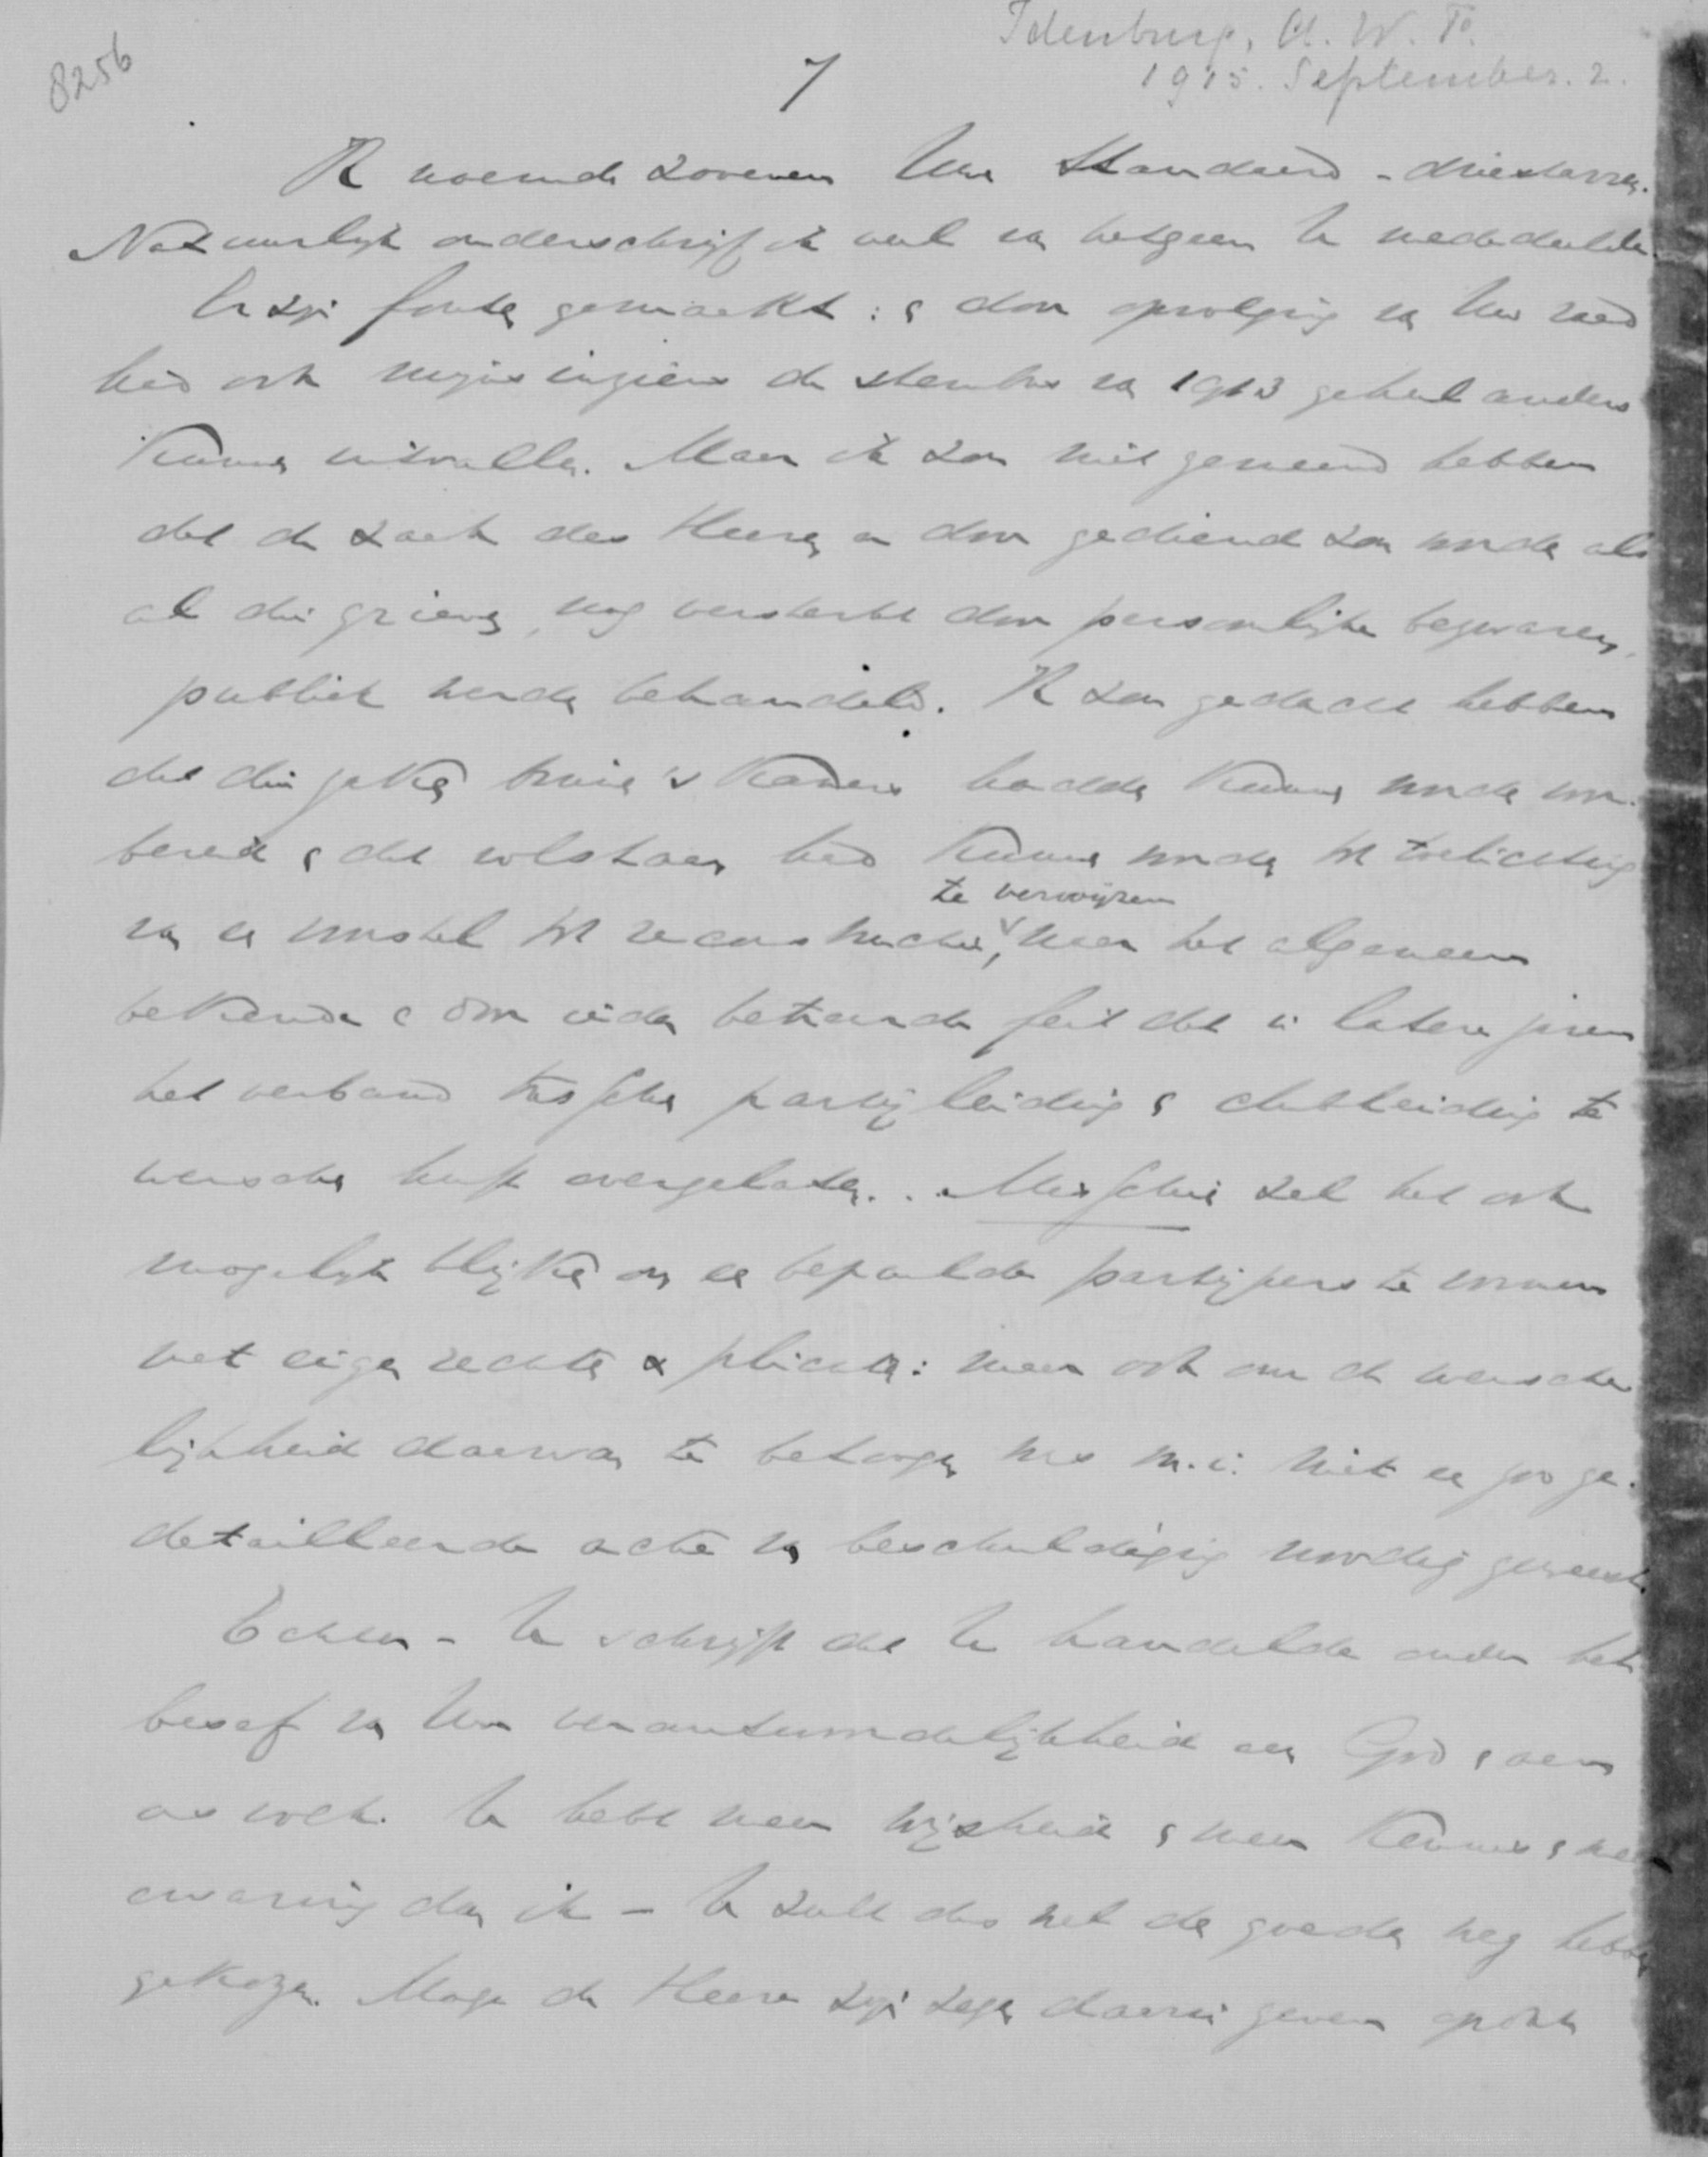 8256
7
Idenburg, A. W. F.
1915. September. 2.
Ik noemde zoveven Uwe Standaard-driestarren.
Natuurlijk onderschrijf ik veel van hetgeen U mededeelde.
Er zijn fouten gemaakt: en door opvolging van Uw raad
had ook mijns inziens de stembus van 1913 geheel anders
kunnen uitvallen. Maar ik zou niet gemeend hebben
dat de zaak des Heeren er door gediend zou worden als
al die grieven, nog versterkt door persoonlijke bezwaren,
publiek werden behandeld. Ik zou gedacht hebben
dat die zaken binnen's kamers hadden kunnen worden voor-
bereid en dat volstaan had kunnen worden tot toelichting
van een voorstel tot reconstructie, te verwijzen naar het algemeen
bekende en door ieder betreurde feit dat in latere jaren
het verband tusschen partijleiding en clubleiding te
wenschen heeft overgelaten.. Misschien zal het ook
mogelijk blijken om een bepaalde partijpers te vormen
met eigen rechten & plichten: maar ook om de wensche-
lijkheid daarvan te betoogen was m.i. niet een zoo ge-
detailleerde acte van beschuldiging noodig geweest.
Echter - U schrijft dat U handelde onder het
besef van Uw verantwoordelijkheid aan God en aan
ons volk. U hebt meer wijsheid en meer kennis en meer
ervaring dan ik - U zult dus wel de goede weg hebben
gekozen. Moge de Heere zijn zegen daarin geven opdat